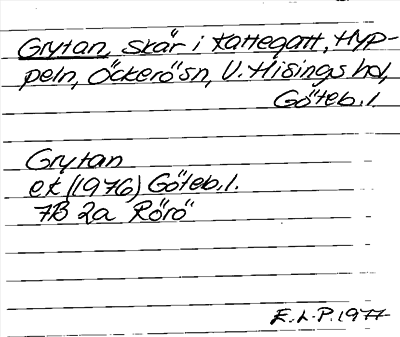 Grytan, skär i Kattegatt, Hyp-
peln, Öckerö sn, V. Hisings hd,
Göteb. l.
Grytan
ek (1976) Göteb. l.
7B 2a Rörö
E. L-P. 1977